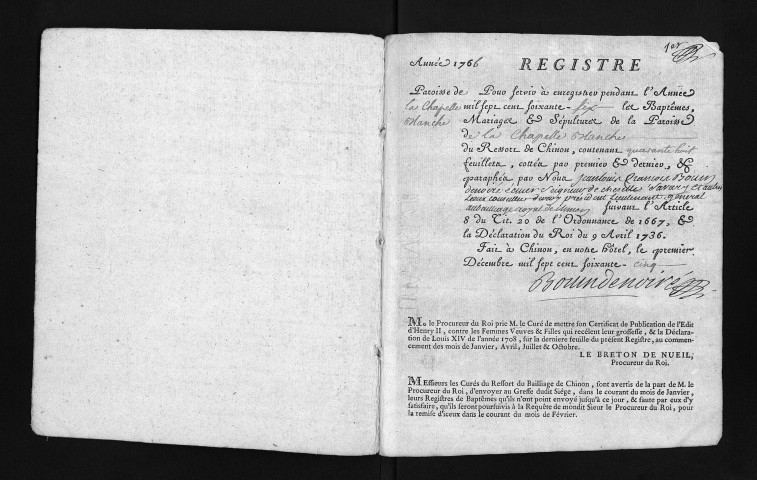 1er
Année 1766 REGISTRE
Paroisse de
la Chapelle
blanche
Pour servir à enregistrer pendant l'Année
mil sept cent soixante-six les Baptêmes,
Mariages & Sépultures de la Paroisse
de la Chapelle blanche
du Ressort de Chinon, contenant quarante huit
feuillets, cottés par premier & dernier, &
paraphés par Nous Jean louis François Bouin
denoiré écuier Seigneur de
lieux conseiller du roy président lieutenant général
au bailliage royal de Chinon suivant l'Article
8 du Tit. 20 de l'Ordonnance de 1667, &
la Déclaration du Roi du 9 Avril 1736.
Fait à Chinon, en notre hôtel, le premier
Décembre mil sept cent soixante-cinq
Bouindenoiré
M. le Procureur du Roi prie M. le Curé de mettre son Certificat de Publication de l'Edit
d'Henry II, contre les Femmes Veuves & Filles qui recélent leur grossesse, & la Déclara-
tion de Louis XIV de l'année 1708, sur la derniere feuille du présent Registre, au commen-
cement des mois de Janvier, Avril, Juillet & Octobre.
LE BRETON DE NUEIL,
Procureur du Roi.
MEssieurs les Curés du Ressort du Bailliage de Chinon, sont avertis de la part de M. le
Procureur du Roi, d'envoyer au Greffe dudit Siége, dans le courant du mois de Janvier,
leurs Registres de Baptêmes qu'ils n'ont point envoyé jusqu'à ce jour, & faute par eux d'y
satisfaire, qu'ils seront poursuivis à la Requête de mondit Sieur le Procureur du Roi, pour
la remise d'iceux dans le courant du mois de Février.